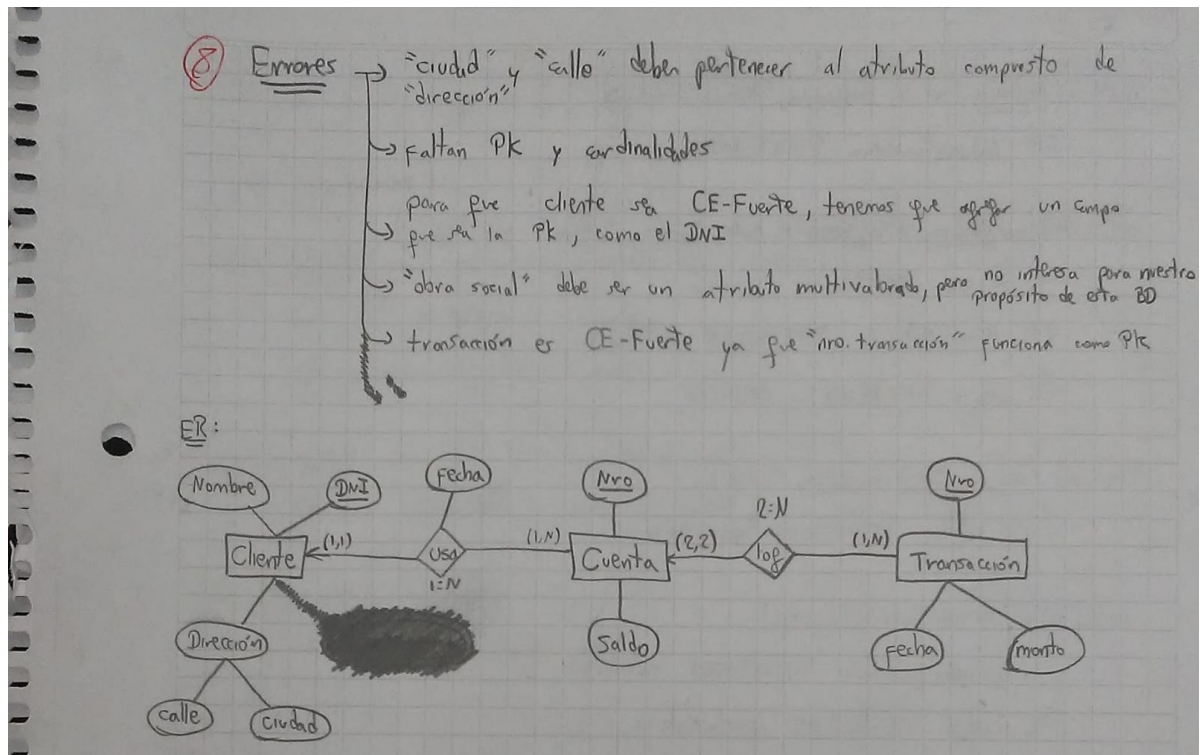 8 Errores → "ciudad" y "calle" deben pertenecer al atributo compuesto de
"dirección"
→ faltan PK y cardinalidades
para que cliente sea CE-Fuerte, tenemos que agregar un campo
→ que sea la PK, como el DNI
→ "obra social" debe ser un atributo multivalorado, pero no interesa para nuestro
propósito de esta BD
→ transacción es CE-Fuerte ya que "nro. transacción" funciona como PK
ER:
Nombre DNI Fecha Nro 2:N Nro
Cliente (1,1) usa (1,N) Cuenta (2,2) log (1,N) Transacción
1:N
Dirección Saldo Fecha monto
calle ciudad